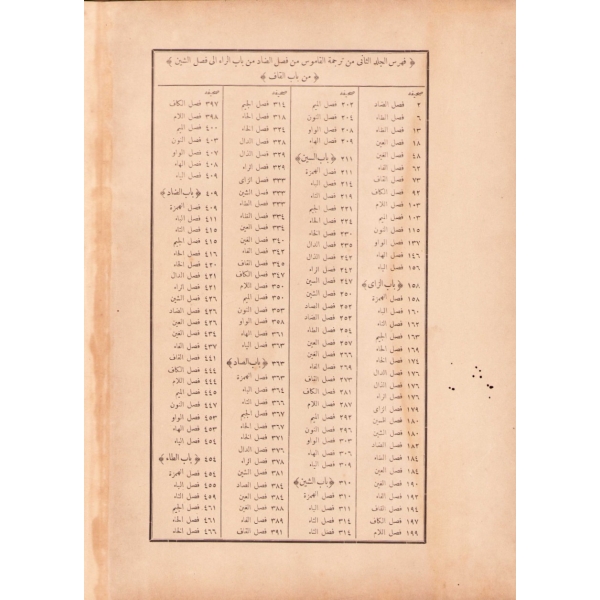 ﴿ فهرس الجلد الثانى من ترجمة القاموس من فصل الضاد من باب الراء الى فصل الشين ﴾
﴿ من باب القاف ﴾
صحيفه
٢ فصل الضاد
٦ فصل الطاء
١٣ فصل الظاء
١٨ فصل العين
٤٨ فصل الغين
٦٢ فصل الفاء
٧٣ فصل القاف
٩٢ فصل الكاف
١٠٣ فصل اللام
١٠٣ فصل الميم
١١٥ فصل النون
١٣٧ فصل الواو
١٤٦ فصل الهاء
١٥٦ فصل الياء
١٥٨ ﴿ باب الزاى ﴾
١٥٨ فصل الهمزة
١٦٠ فصل الباء
١٦٢ فصل التاء
١٦٣ فصل الجيم
١٦٩ فصل الحاء
١٧٤ فصل الخاء
١٧٦ فصل الدال
١٧٦ فصل الذال
١٧٦ فصل الراء
١٧٩ فصل الزاى
١٨٠ فصل السين
١٨٠ فصل الشين
١٨٢ فصل الضاد
١٨٤ فصل الطاء
١٨٤ فصل العين
١٩٠ فصل الغين
١٩٢ فصل الفاء
١٩٤ فصل القاف
١٩٧ فصل الكاف
١٩٩ فصل اللام
صحيفه
٢٠٢ فصل الميم
٢٠٤ فصل النون
٢٠٨ فصل الواو
٢٠٩ فصل الهاء
٢١١ ﴿ باب السين ﴾
٢١١ فصل الهمزة
٢١٤ فصل الباء
٢١٩ فصل التاء
٢٢١ فصل الجيم
٢٢٤ فصل الحاء
٢٣٠ فصل الخاء
٢٣٥ فصل الدال
٢٤٢ فصل الذال
٢٤٢ فصل الراء
٢٤٧ فصل السين
٢٥٠ فصل الشين
٢٥٢ فصل الصاد
٢٥٢ فصل الضاد
٢٥٤ فصل الطاء
٢٥٧ فصل العين
٢٦٦ فصل الغين
٢٦٩ فصل الفاء
٢٧٣ فصل القاف
٢٨١ فصل الكاف
٢٨٧ فصل اللام
٢٩٢ فصل الميم
٢٩٦ فصل النون
٣٠٣ فصل الواو
٣٠٦ فصل الهاء
٣٠٩ فصل الياء
٣١٠ ﴿ باب الشين ﴾
٣١٠ فصل الهمزة
٣١١ فصل الباء
٣١٤ فصل التاء
صحيفه
٣١٤ فصل الجيم
٣١٨ فصل الحاء
٣٢٤ فصل الخاء
٣٢٨ فصل الدال
٣٢٩ فصل الذال
٣٢٩ فصل الراء
٣٣٣ فصل الزاى
٣٣٣ فصل الشين
٣٣٣ فصل الطاء
٣٣٤ فصل الظاء
٣٣٤ فصل العين
٣٤٠ فصل الغين
٣٤٢ فصل الفاء
٣٤٥ فصل القاف
٣٤٧ فصل الكاف
٣٥٠ فصل اللام
٣٥٠ فصل الميم
٣٥٣ فصل النون
٣٥٨ فصل الواو
٣٦١ فصل الهاء
٣٦٣ فصل الياء
٣٦٣ ﴿ باب الصاد ﴾
٣٦٣ فصل الهمزة
٣٦٤ فصل الباء
٣٦٦ فصل التاء
٣٦٧ فصل الجيم
٣٦٧ فصل الحاء
٣٧١ فصل الخاء
٣٧٦ فصل الدال
٣٧٨ فصل الراء
٣٨١ فصل الشين
٣٨٤ فصل الصاد
٣٨٤ فصل العين
٣٨٨ فصل الغين
٣٨٩ فصل الفاء
٣٩١ فصل القاف
صحيفه
٣٩٧ فصل الكاف
٣٩٨ فصل اللام
٤٠٠ فصل الميم
٤٠٣ فصل النون
٤٠٧ فصل الواو
٤٠٨ فصل الهاء
٤٠٩ فصل الياء
٤٠٩ ﴿ باب الضاد ﴾
٤٠٩ فصل الهمزة
٤١١ فصل الباء
٤١٥ فصل التاء
٤١٥ فصل الجيم
٤١٦ فصل الحاء
٤٢٠ فصل الخاء
٤٢١ فصل الدال
٤٢١ فصل الراء
٤٢٦ فصل الشين
٤٢٦ فصل الضاد
٤٢٦ فصل العين
٤٣٤ فصل الغين
٤٣٧ فصل الفاء
٤٤١ فصل القاف
٤٤٤ فصل الكاف
٤٤٤ فصل اللام
٤٤٥ فصل الميم
٤٤٧ فصل النون
٤٥٣ فصل الواو
٤٥٣ فصل الهاء
٤٥٤ فصل الياء
٤٥٤ ﴿ باب الطاء ﴾
٤٥٤ فصل الهمزة
٤٥٥ فصل الباء
٤٥٩ فصل التاء
٤٦١ فصل الجيم
٤٦١ فصل الحاء
٤٦٦ فصل الخاء